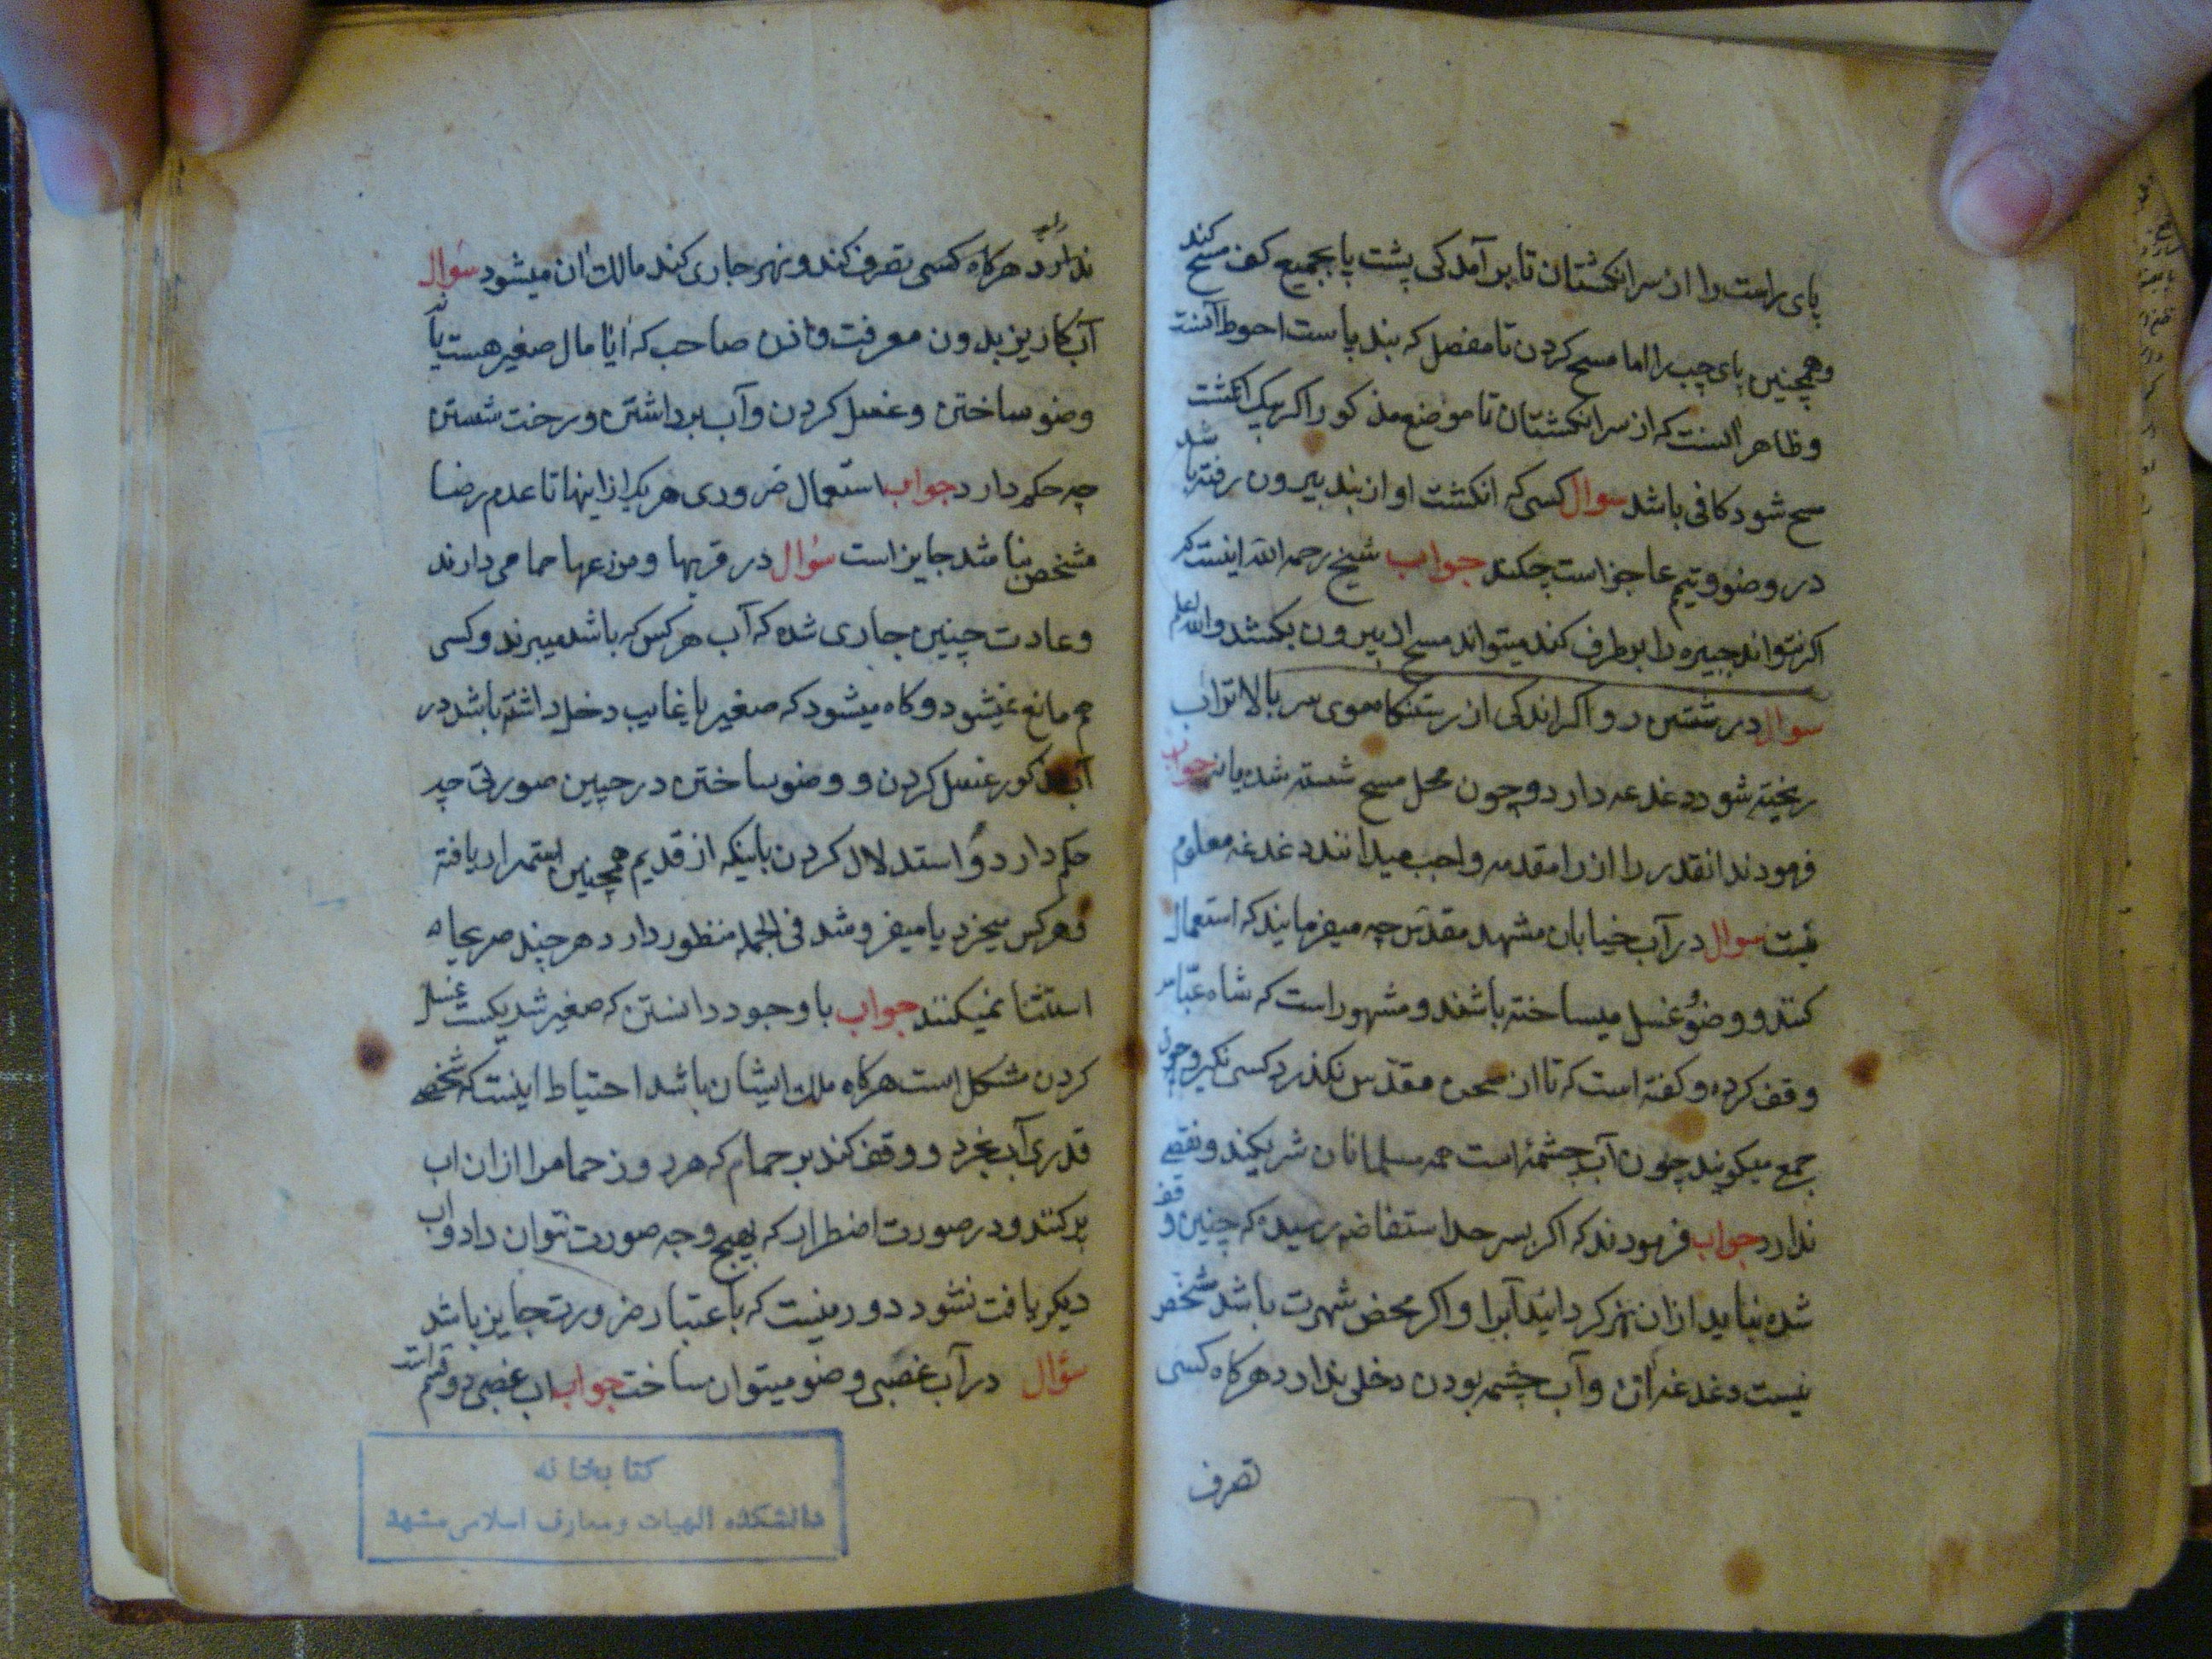 پای راست را از سر انکشتان تا بر آمدکی پشت پا بجمیع کف مسح کند
و همچنین پای چپ را اما مسح کردن تا مفصل که بند پاست احوط آنست
و ظاهر آنست که از سر انکشتان تا موضع مذکور را اکر بیک انکشت
مسح شود کافی باشد سوال کسی که انکشت او از بند بیرون رفته باشد
در وضو و تیمم عاجز است چکند جواب شیخ رحمه الله اینست که
اکر نتواند جبیره را بر طرف کند میتواند مسح از بیرون بکشد والله اعلم
سوال در شستن رو اکر اندکی از رستنکاه موی سر بالاتر آب
ریخته شود دغدغه دارد و چون محل مسح شسته شده یا نه جواب
فرمودند انقدر را از را مقدمه واجب میدانند دغدغه معلوم
نیست سوال در آب خیابان مشهد مقدس چه میفرمایند که استعمال
کنند و وضو و غسل میساخته باشند و مشهور است که شاه عباس
وقف کرده و کفته است که تا از صحن مقدس نکذرد کسی نکیرد و چون
جمع میکویند چون آب چشمهٔ است همه مسلمانان شریکند و نقصی
ندارد جواب فرمودند که اکر بسر حد استفاضه رسیده که چنین وقف
شده نباید از ان نهر کردانید آبرا و اکر محض شهرت باشد مشخص
نیست دغدغه آن و آب چشمه بودن دخلی ندارد هرکاه کسی
تصرف
ندارد هرکاه کسی تصرف کند و نهر جاری کند مالک ان میشود سؤال
آب کاریز بدون معرفت و اذن صاحب که آیا مال صغیر هست یا نه
وضو ساختن و غسل کردن و آب برداشتن و رخت شستن
چه حکم دارد جواب استعمال ضروری هر یک از اینها تا عدم رضا
مشخص نباشد جایز است سؤال در قریها و مزرعها حمامی دارند
و عادت چنین جاری شده که آب هر کس که باشد میبرند و کسی
هم مانع نمیشود و کاه میشود که صغیر یا غایب دخل داشته باشد در
آب مذکور غسل کردن و وضو ساختن در چنین صورتی چه
حکم دارد و استدلال کردن باینکه از قدیم همچنین استمرار یافته
و هر کس میخرد یا میفروشد فی الجمله منظور دارد هر چند صریحا
استثنا نمیکنند جواب با وجود دانستن که صغیر شریکست غسل
کردن مشکل است هرکاه ملک ایشان باشد احتیاط اینست که شخصی
قدری آب بخرد و وقف کند بر حمام که هر روز حمام را از ان اب
پر کنند و در صورت اضطرار که بهیچ وجه صورت نتوان داد و اب
دیکر یافت نشود دور نیست که باعتبار ضرورت جایز باشد
سؤال در آب غصبی وضو میتوان ساخت جواب اب غصبی دو قسم است
کتابخانه
دانشکده الهیات و معارف اسلامی مشهد